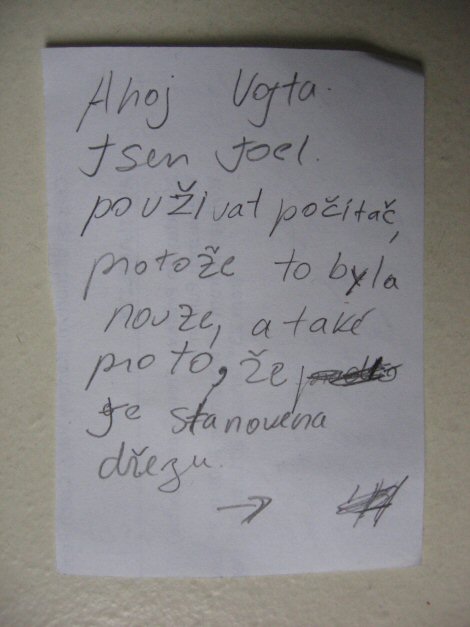 Ahoj Vojta.
Jsen Joel.
používat počítač,
protože to byla
nouze, a také
proto, že
Je stanovena
dřezu.
→